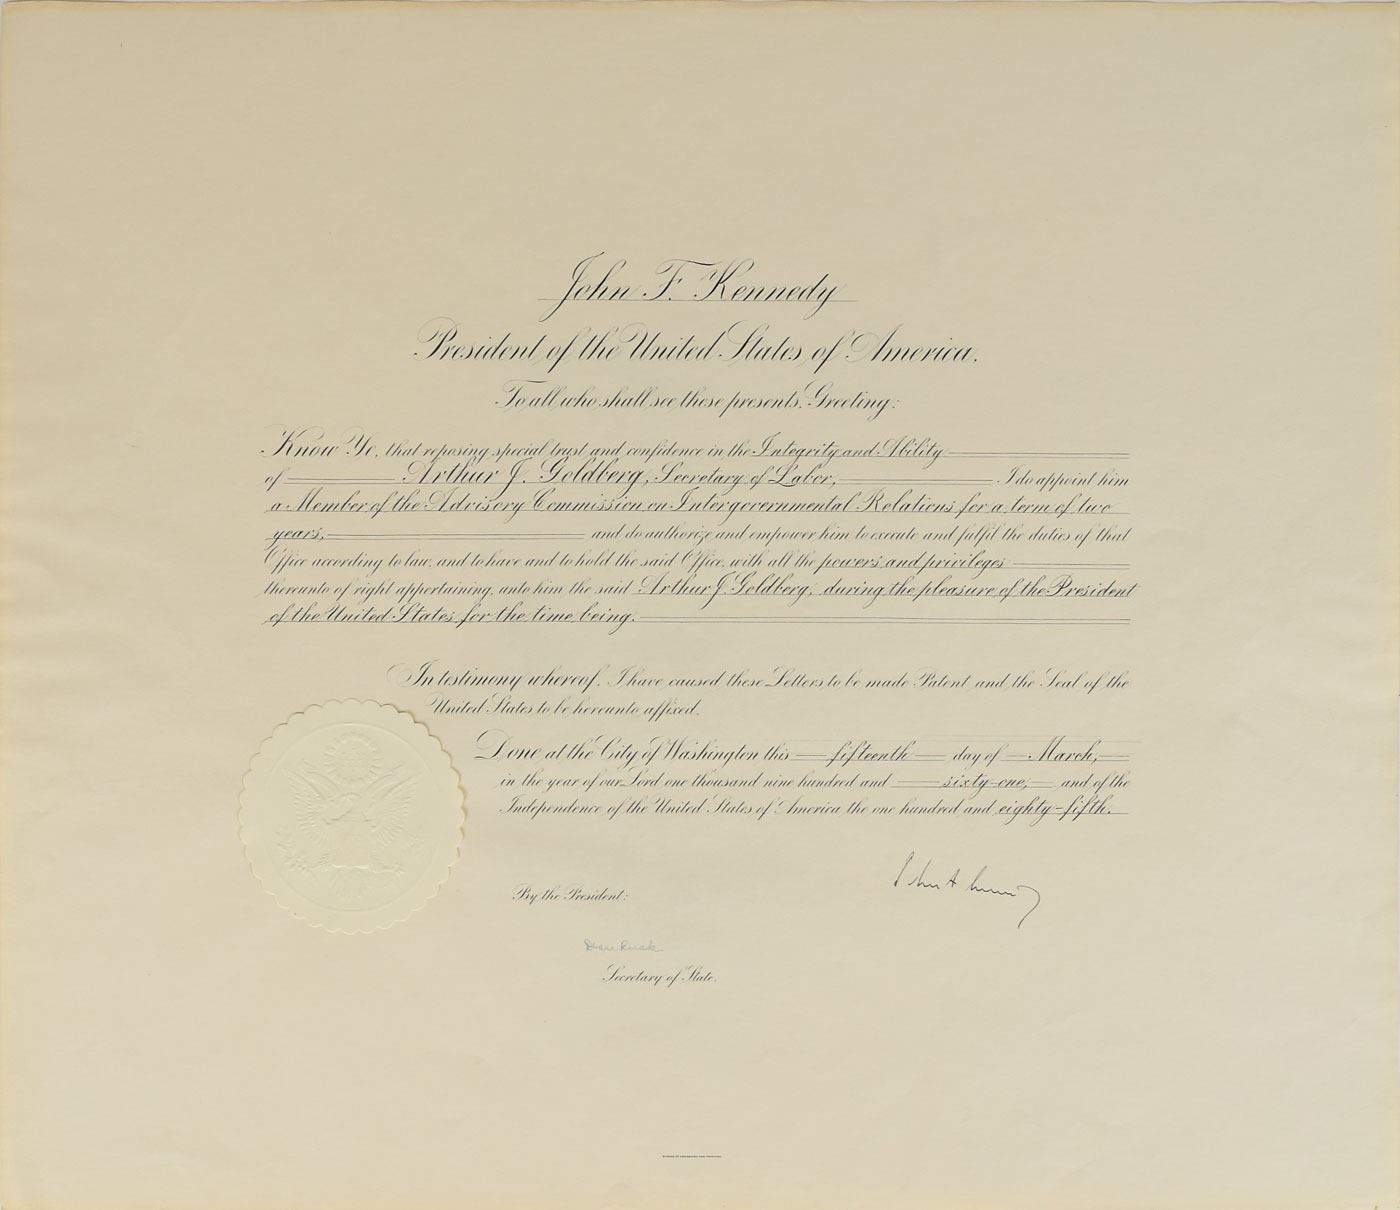 John F. Kennedy
President of the United States of America.
To all who shall see these presents, Greeting:
Know Ye, that reposing special trust and confidence in the Integrity and Ability
of Arthur J. Goldberg, Secretary of Labor, I do appoint him
a Member of the Advisory Commission on Intergovernmental Relations for a term of two
years, and do authorize and empower him to execute and fulfil the duties of that
Office according to law, and to have and to hold the said Office, with all the powers and privileges
thereunto of right appertaining, unto him the said Arthur J. Goldberg, during the pleasure of the President
of the United States for the time being.
In testimony whereof, I have caused these Letters to be made Patent, and the Seal of the
United States to be hereunto affixed.
Done at the City of Washington this fifteenth day of March,
in the year of our Lord one thousand nine hundred and sixty-one, and of the
Independence of the United States of America the one hundred and eighty-fifth.
By the President:
Dean Rusk
Secretary of State.
BUREAU OF ENGRAVING AND PRINTING